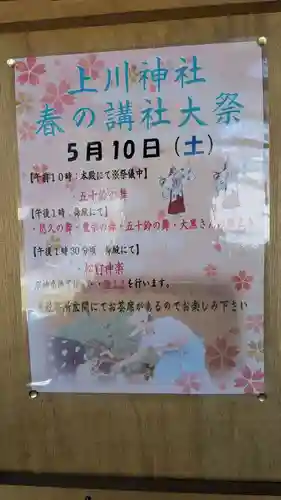 上川神社
春の講社大祭
5月10日(土)
【午前10時:本殿にて※祭儀中】
・五十鈴の舞
【午後1時、
にて】
・悠久の舞・豊栄の舞・五十鈴の舞・大黒さん
【午後1時30分頃
にて】
・松前神楽
を行います。
社務所玄関にてお茶席があるのでお楽しみ下さい